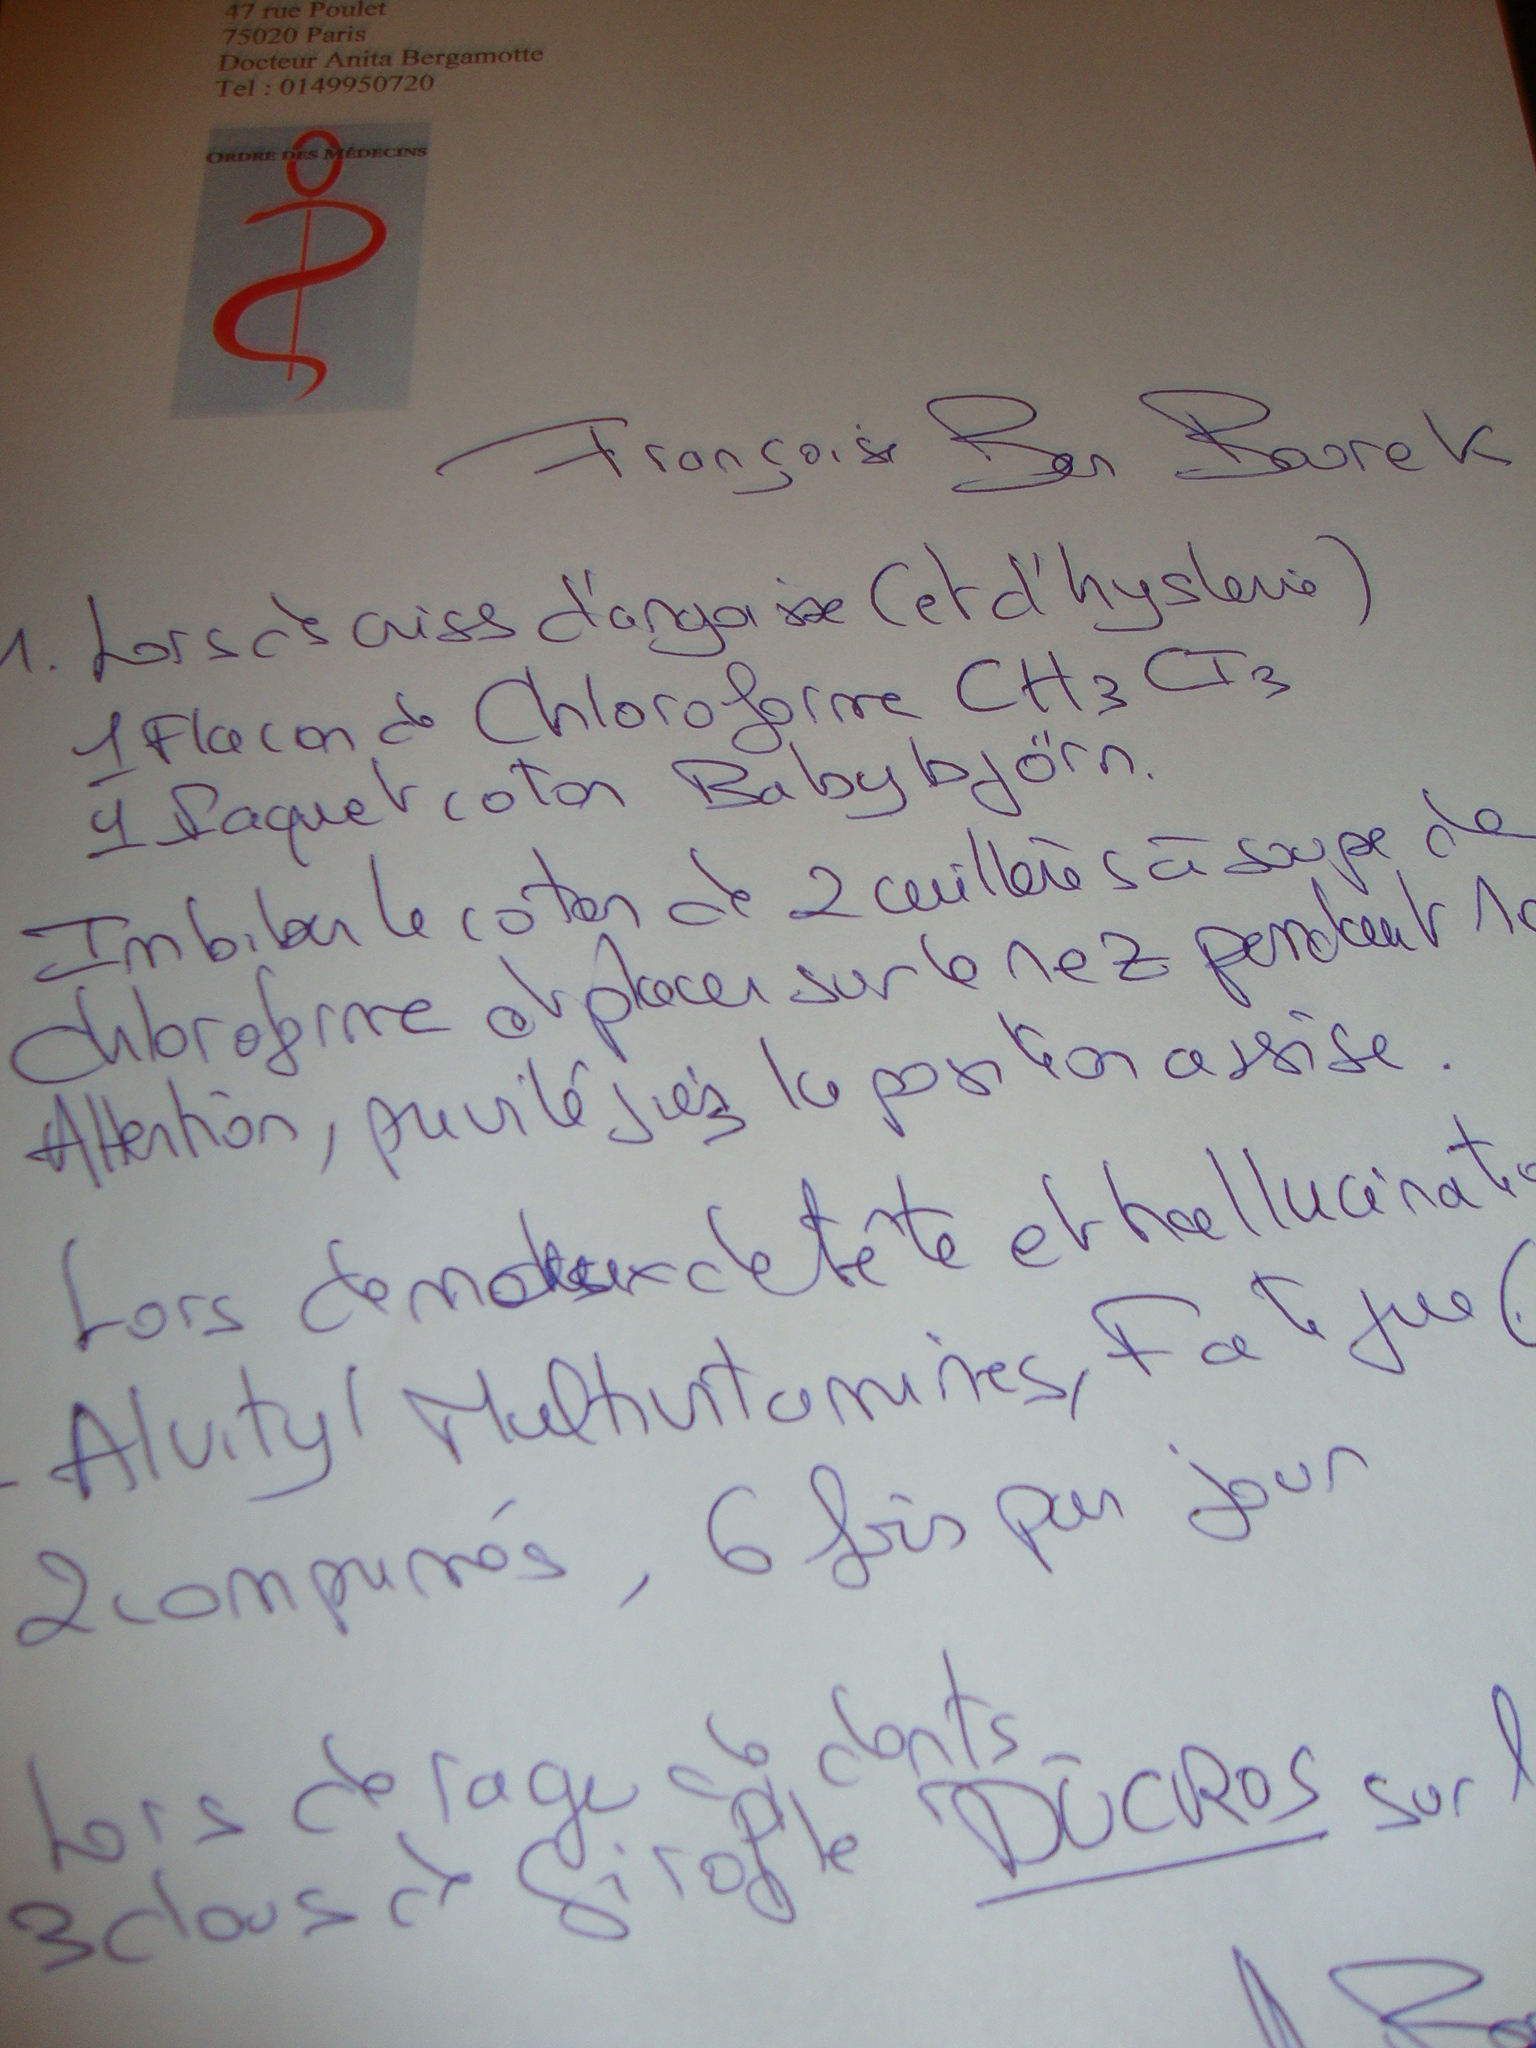 47 rue Poulet
75020 Paris
Docteur Anita Bergamotte
Tel : 0149950720
ORDRE DES MÉDECINS
Françoise Ben Barek
1. Lors de crises d'angoisse (et d'hysterie)
1 Flacon de Chloroforme CH3 Cl3
1 Paquet coton Babybjörn.
Imbiber le coton de 2 cuillères à soupe de
Chloroforme et placer sur le nez pendant 10
Attention, privilégiez la position assise.
Lors de maux de tête et hallucinatio
- Alvityl Multivitamines, Fatigue (
2 comprimés, 6 fois par jour
Lors de rage de dents
3 clous de Girofle DUCROS sur l